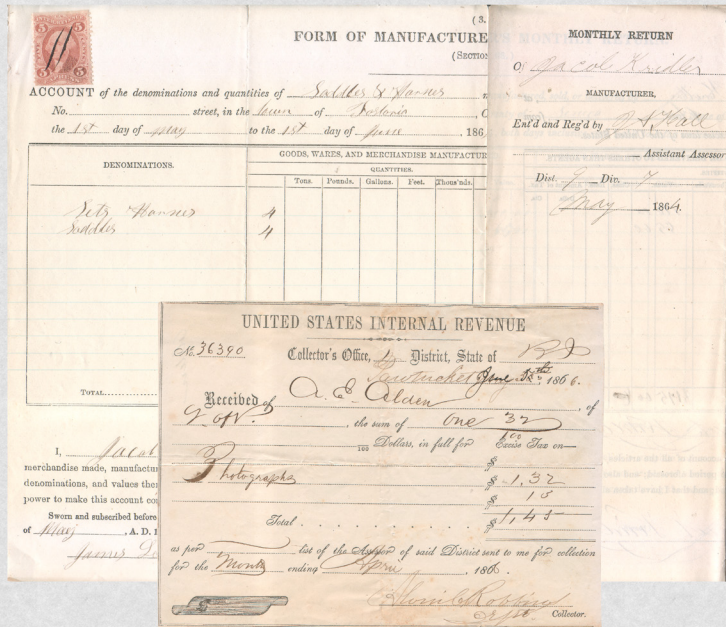 (3.
FORM OF MANUFACTURE
(SECTION
ACCOUNT of the denominations and quantities of Saddles & Harness
No. street, in the town of Fostoria
the 1st day of May to the 1st day of June, 186
GOODS, WARES, AND MERCHANDISE MANUFACTUR
DENOMINATIONS.
QUANTITIES.
Tons. Pounds. Gallons. Feet. Thous'nds.
Sets Harness 4
Saddles 4
TOTAL
I, Jacob
merchandise made, manufactur
denominations, and values the
power to make this account co
Sworn and subscribed before
of May, A. D. 1
James
MONTHLY RETURN
Of Jacob Kridler
MANUFACTURER,
Ent'd and Reg'd by Hall
Assistant Assessor
Dist. 9 Div. 7
May 1864.
UNITED STATES INTERNAL REVENUE
No. 36390 Collector's Office, District, State of R I
Pawtucket June, 1866.
Received of A. E. Alden, of
, the sum of One 32
100 Dollars, in full for Excise Tax on—
$
Photographs $ 1,32
$ 13
Total $ 1,45
as per list of the Assessor of said District sent to me for collection
for the Month ending April, 186
Robbins
Collector.